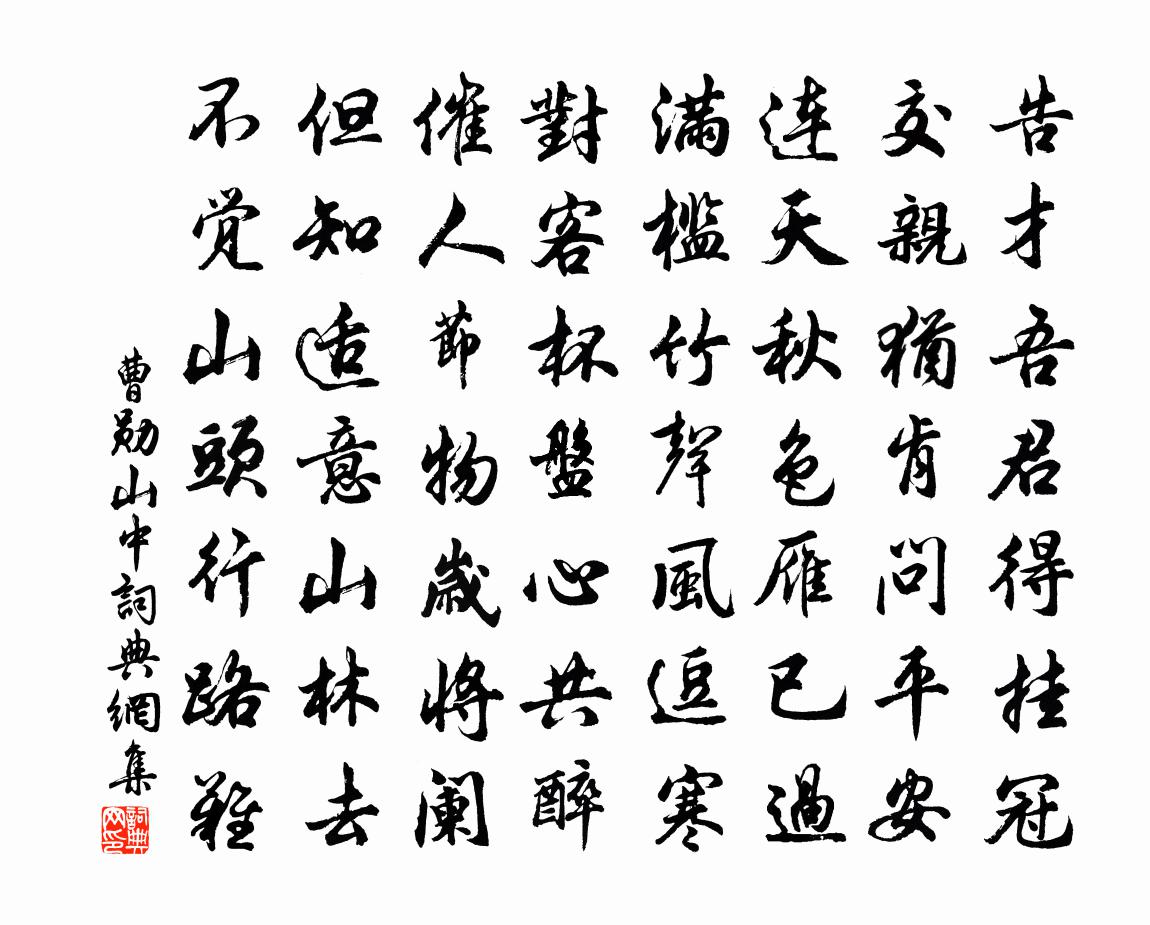 告才吾君得挂冠
交親猶肯問平安
連天秋色雁已過
滿檻竹聲風逗寒
對客杯盤心共醉
催人節物歲將闌
但知適意山林去
不覺山頭行路難
曹勛山中詞典網集
詞典網印